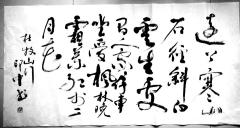 遠上寒山
石徑斜白
雲生處
有人家停車
坐愛楓林晚
霜葉紅於二
月花
杜牧山行